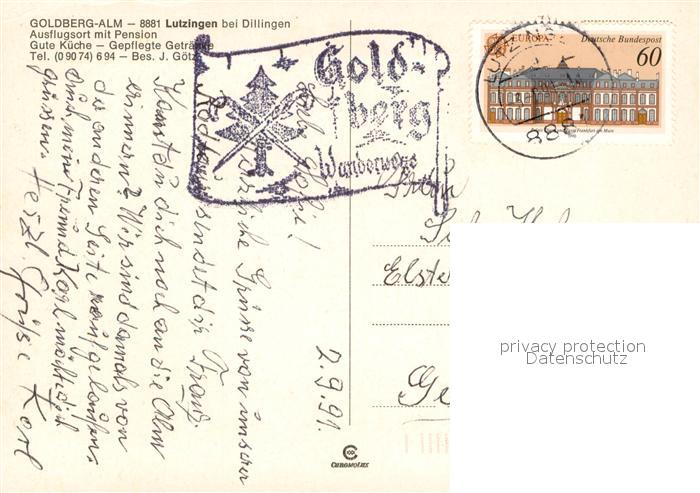 GOLDBERG-ALM – 8881 Lutzingen bei Dillingen
Ausflugsort mit Pension
Gute Küche – Gepflegte Getränke
Tel. (0 90 74) 6 94 – Bes. J. Götz
Gold-
berg
Wanderwege
EUROPA Deutsche Bundespost
60
Frankfurt am Main
1990
88
2.9.91.
Grüße von unserer
sendet dir Franz.
Kannst du dich noch an die Alm
erinnern? Wir sind damals von
der anderen Seite raufgelaufen.
Auch mein Freund Karl möchte dich
grüssen. Herzl. Grüße Karl
Frau
Elster
Ge
CHROMOLUX
privacy protection
Datenschutz